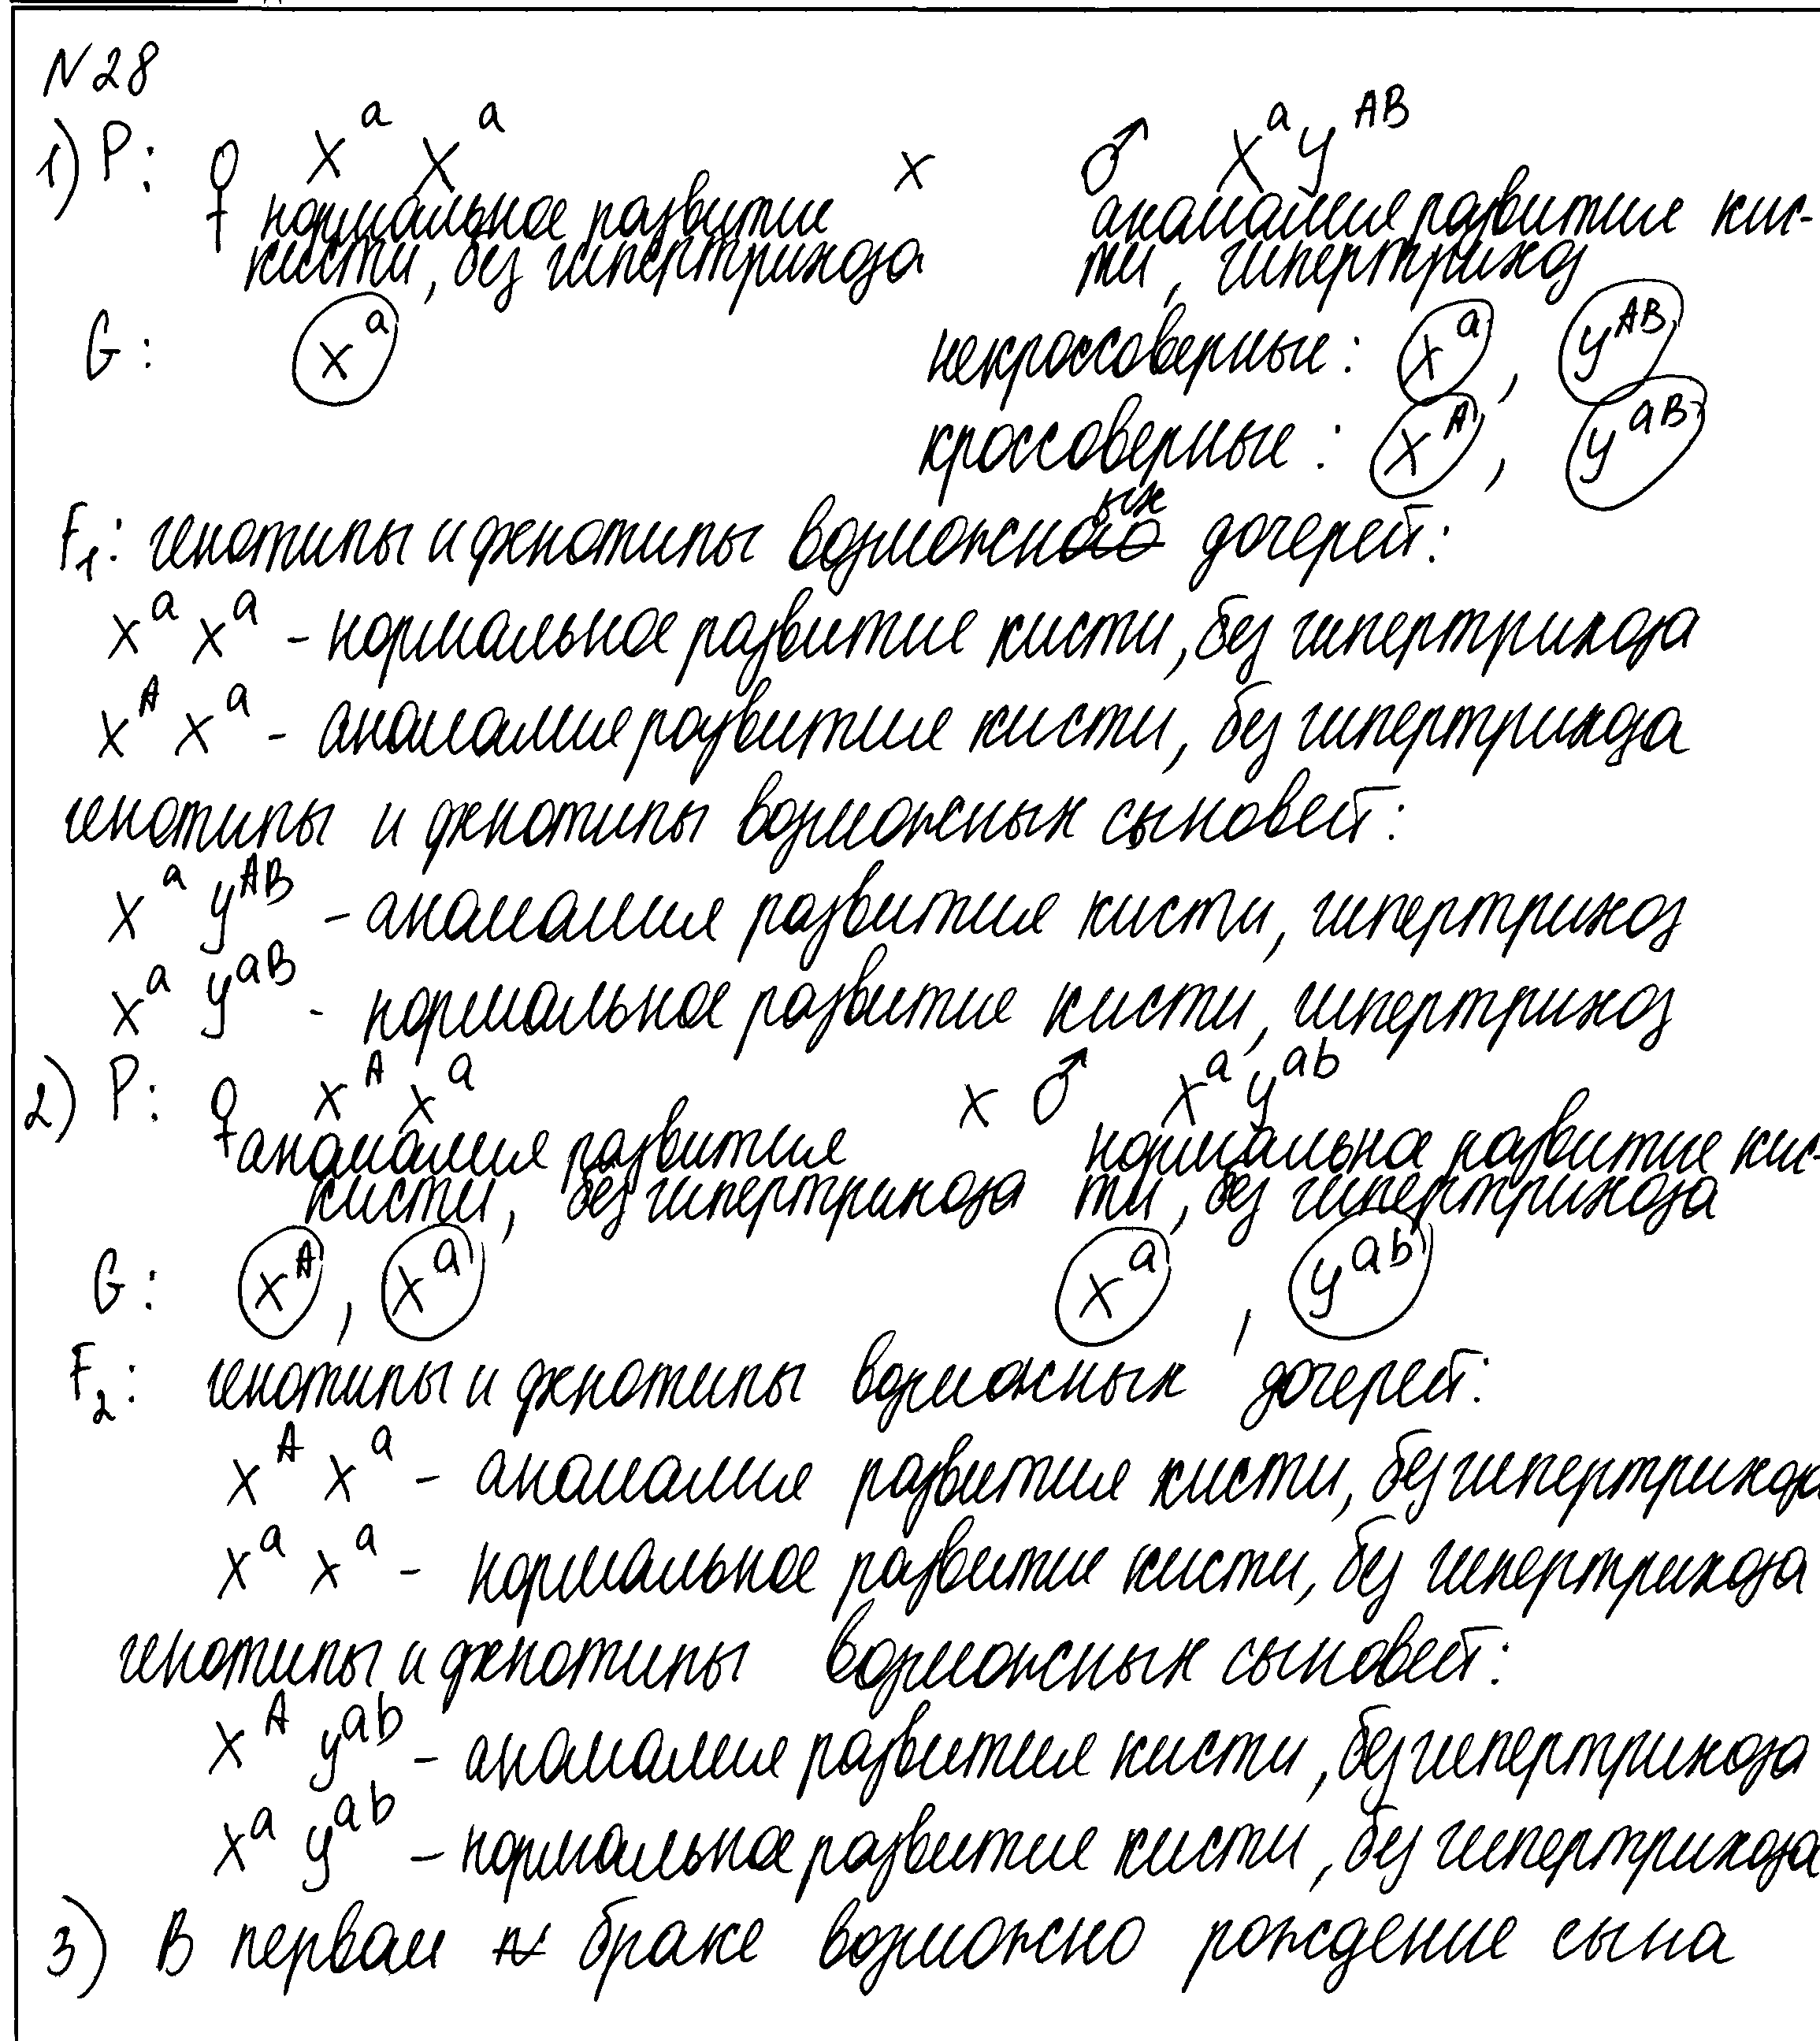 N28
1) P: ♀ X^a X^a x ♂ X^a Y^AB
нормальное развитие аномалия развития кис-
кисти, без гипертрихоза ти, гипертрихоз
G: X^a некроссоверные: X^a, Y^AB
кроссоверные: X^A, Y^aB
F1: генотипы и фенотипы возможных дочерей:
X^a X^a - нормальное развитие кисти, без гипертрихоза
X^A X^a - аномалия развития кисти, без гипертрихоза
генотипы и фенотипы возможных сыновей:
X^a Y^AB - аномалия развития кисти, гипертрихоз
X^a Y^aB - нормальное развитие кисти, гипертрихоз
2) P: ♀ X^A X^a x ♂ X^a Y^ab
аномалия развития нормальное развитие кис-
кисти, без гипертрихоза ти, без гипертрихоза
G: X^A, X^a X^a, Y^ab
F2: генотипы и фенотипы возможных дочерей:
X^A X^a - аномалия развития кисти, без гипертрихоза
X^a X^a - нормальное развитие кисти, без гипертрихоза
генотипы и фенотипы возможных сыновей:
X^A Y^ab - аномалия развития кисти, без гипертрихоза
X^a Y^ab - нормальное развитие кисти, без гипертрихоза
3) В первом браке возможно рождение сына